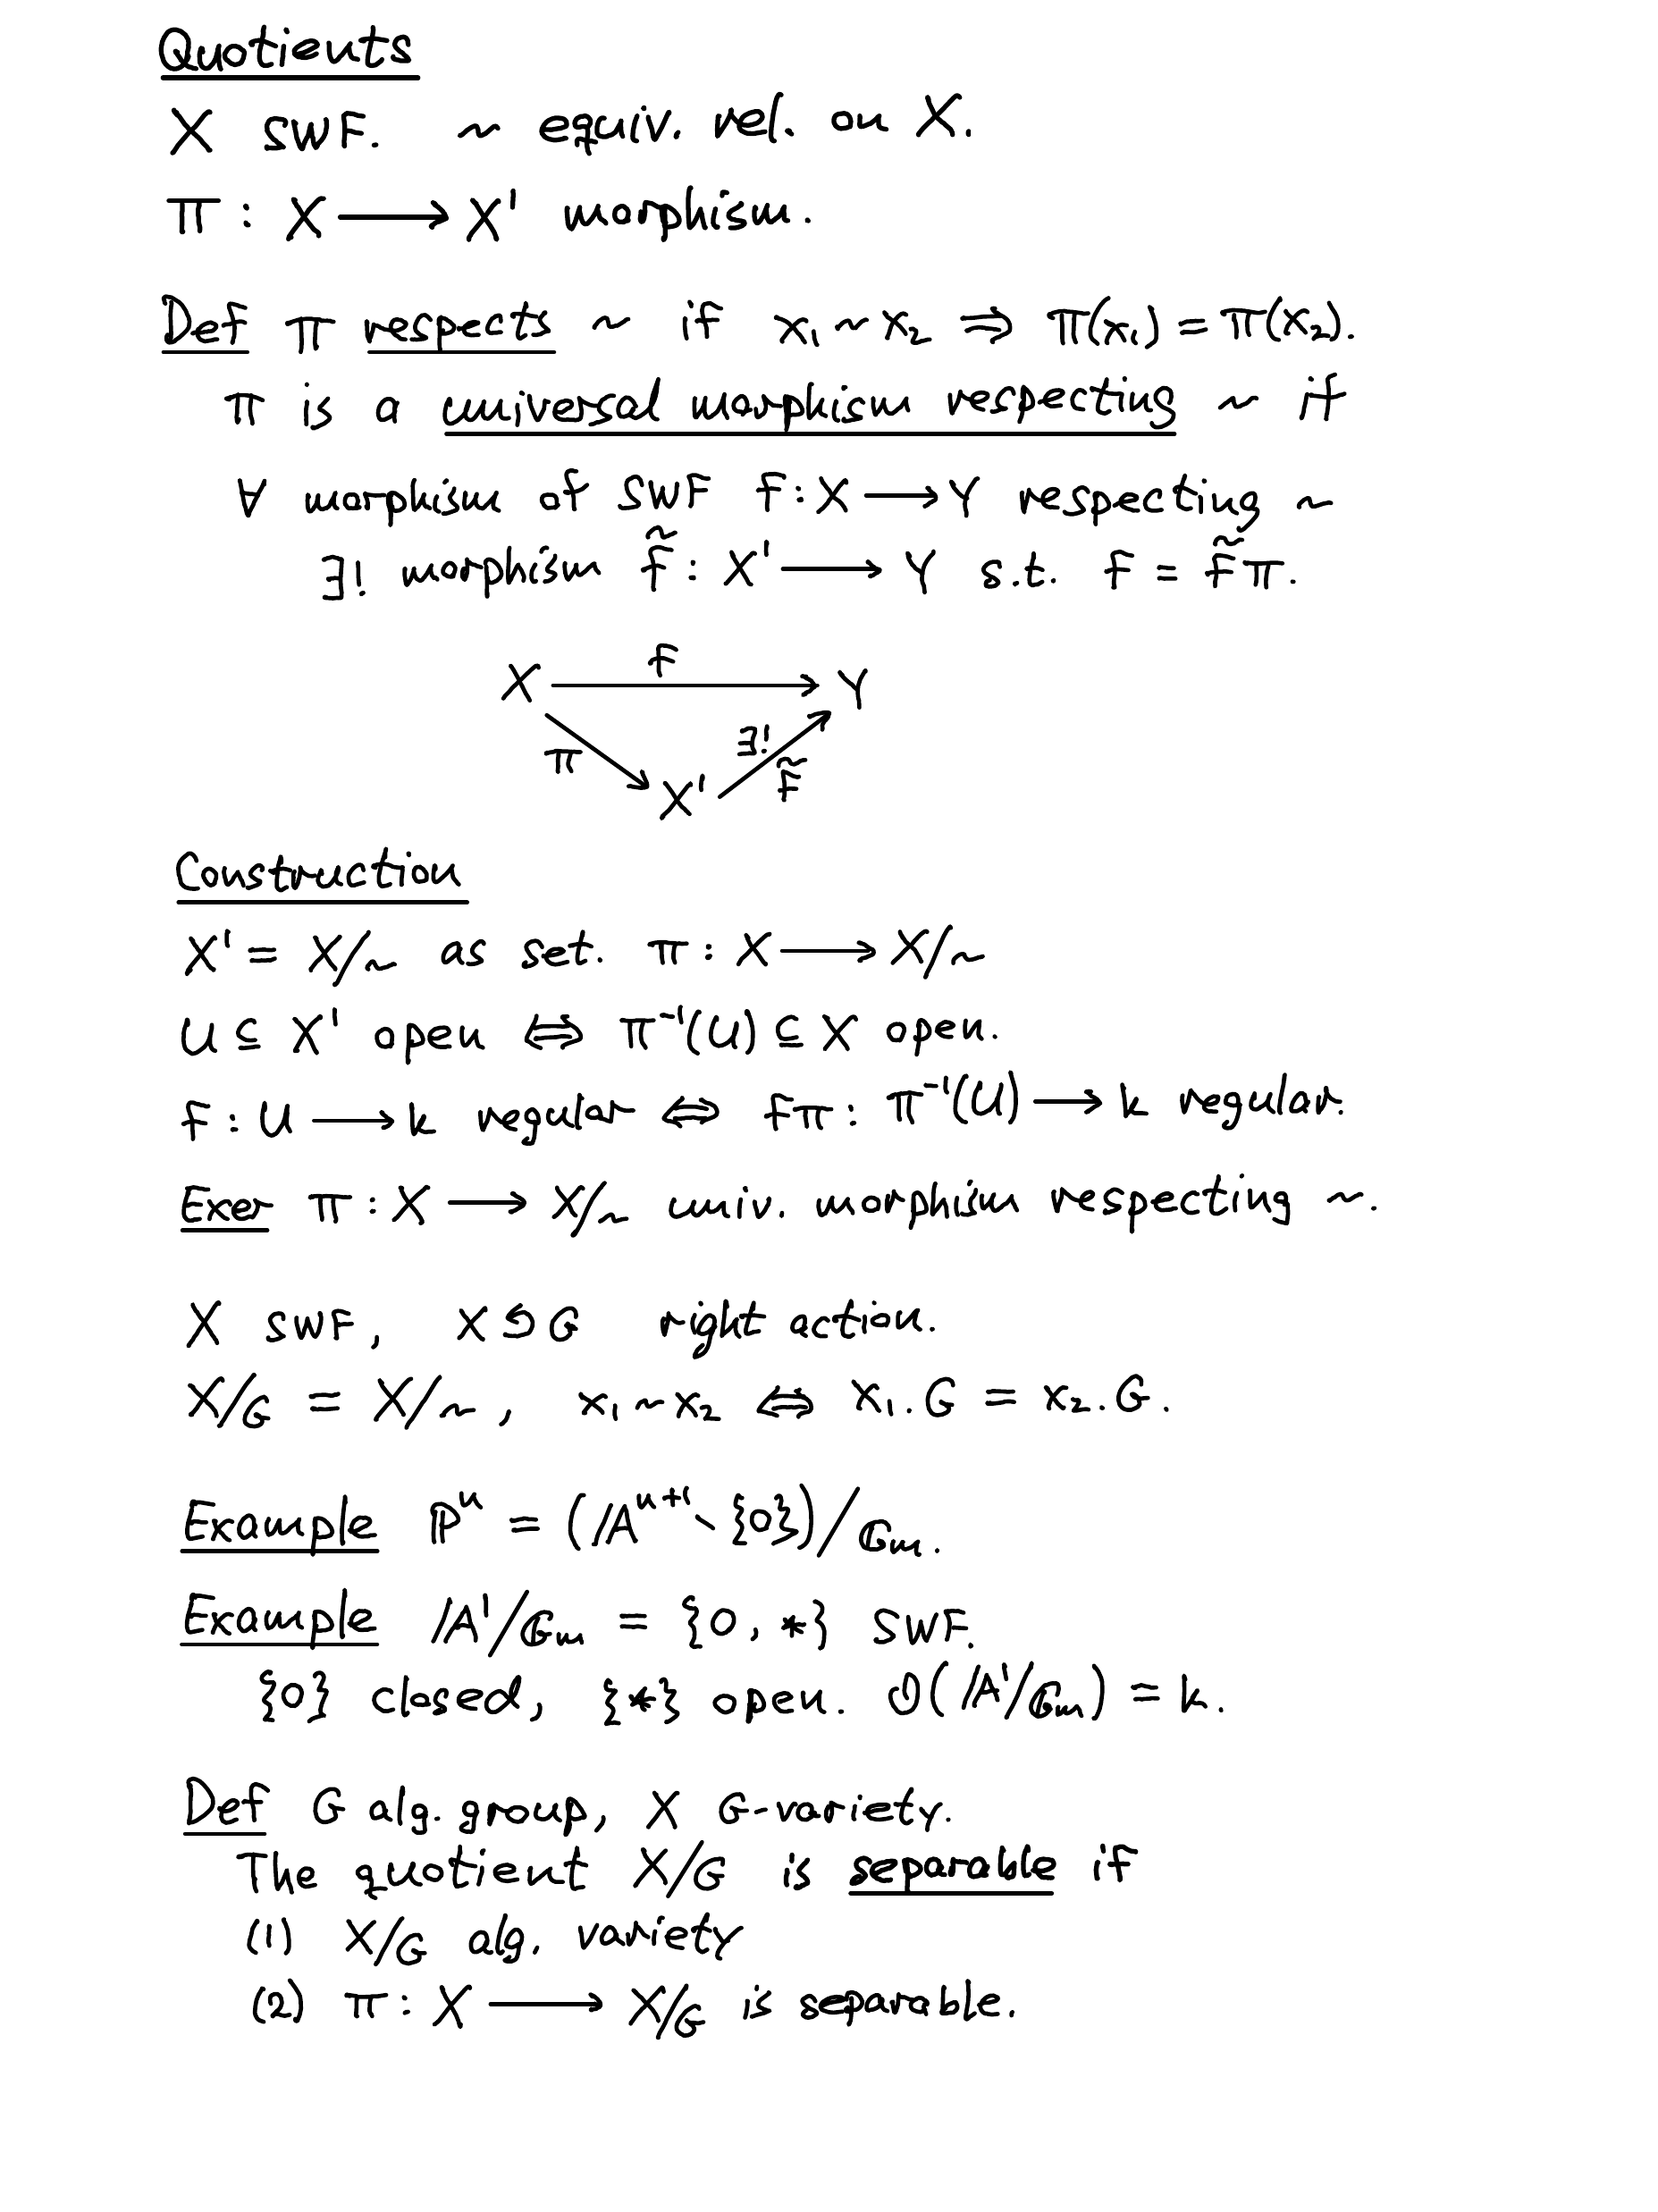 Quotients
X SWF. ~ equiv. rel. on X.
π : X ⟶ X' morphism.
Def π respects ~ if x₁ ~ x₂ ⇒ π(x₁) = π(x₂).
π is a universal morphism respecting ~ if
∀ morphism of SWF f : X ⟶ Y respecting ~
∃! morphism f̃ : X' ⟶ Y s.t. f = f̃π.
f
X ⟶ Y
π ∃! f̃
X'
Construction
X' = X/~ as set. π : X ⟶ X/~
U ⊆ X' open ⇔ π⁻¹(U) ⊆ X open.
f : U ⟶ k regular ⇔ fπ : π⁻¹(U) ⟶ k regular.
Exer π : X ⟶ X/~ univ. morphism respecting ~.
X SWF, X ↺ G right action.
X/G = X/~ , x₁ ~ x₂ ⇔ x₁.G = x₂.G.
Example ℙⁿ = (𝔸ⁿ⁺¹ ∖ {0})/𝔾ₘ.
Example 𝔸¹/𝔾ₘ = {0, *} SWF.
{0} closed, {*} open. 𝒪(𝔸¹/𝔾ₘ) = k.
Def G alg. group, X G-variety.
The quotient X/G is separable if
(1) X/G alg. variety
(2) π : X ⟶ X/G is separable.